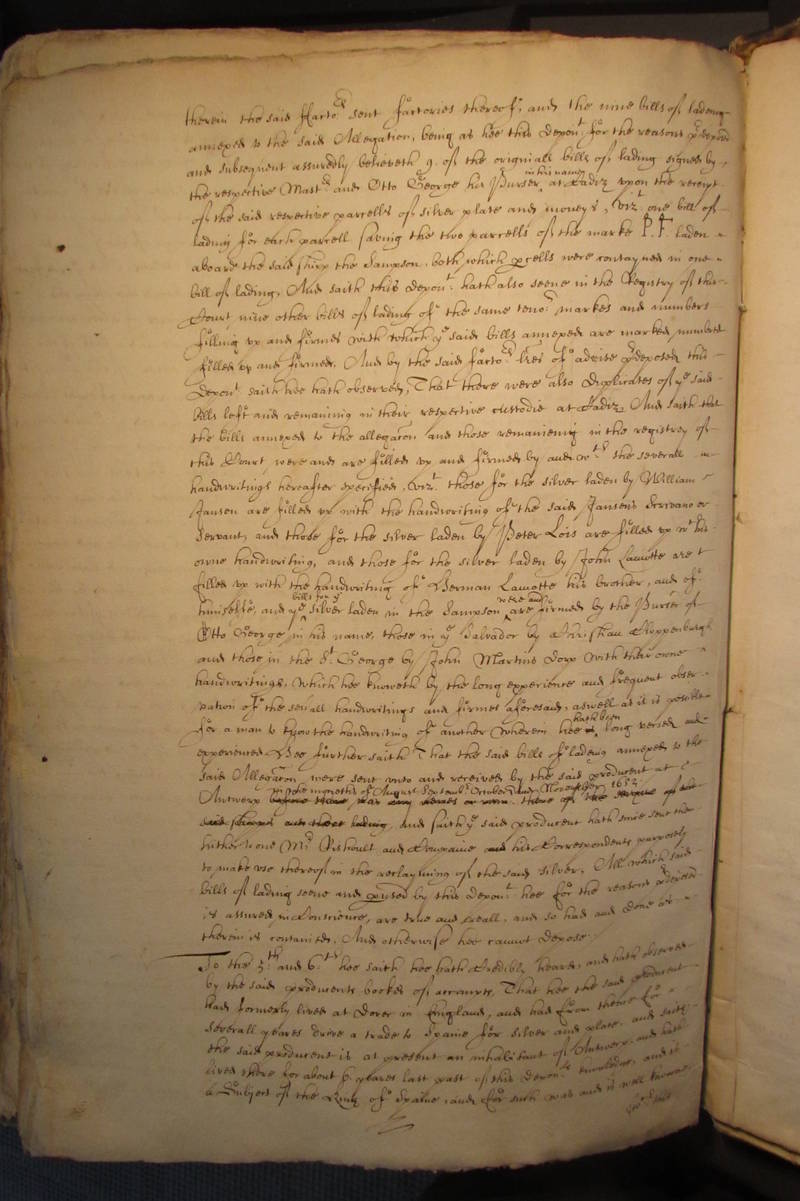 therein the said Facto:rs sent factories thereof, and the nine bills of lading
annexed to the said Allegation, being as hee this depon:t for the reasons p:rdeposed
and subsequent assuredly beleeveth 9. of the originall bills of lading signed by
the respective Mast:rs and Otto George his Purser in his name at Cadiz vpon the receipt
of the said respective parcells of silver plate and money's, viz:t one bill of
lading for each parcell saving the two parcells of the marke P. P. laden
aboard the said shipp the Sampson, both which p:cells were contayned in one
bill of lading. And saith this depon:t hath also seene in the Registry of this
Court nine other bills of lading of the same teno:r markes and numbers
filling vp and firmes with which y:e said bills annexed are marked, numbred
filled vp and firmed. And by the said facto:rs l:res of advise p:rdeposed this
depon:t saith hee hath observed, That there were also Duplicates of y:e said
bills left and remaining in their respective custodie at Cadiz. And saith that
the bills annexed to the allegacon and those remaineing in the registrey of
this Court were and are filled vp and firmed by and w:th the severall
handwritings hereafter specified, viz:t those for the silver laden by William
Jansen are filled vp with the handwriting of the said Jansens Scrivano or
Servant, and those for the silver laden by Peter Lois are filled vp w:t his
owne handwriting, and those for the silver laden by John Lamotte are
filled vp with the handwriting of Herman Lamotte his brother, and of
himselfe, and y:e bills for y:e silver laden in the Sampson were and are firmed by the Purser of
Otto George in his name, those in y:e Salvador by Christian Cloppenburgh
and those in the S:t George by John Martins Dorp with their owne
handwritings, which hee knoweth by the long experience and frequent obser-
vation of the sev:all handwritings and firmes aforesaid, aswell as it is possible
for a man to know the handwriting of another wherein hee hath bin long versed and
experienced Hee further saith That the said bills of lading annexed to the
said Allegacon were sent vnto and received by the said producent at
Antwerp in the moneths of August Septemb:r October and November 1652
and saith y:e said producent hath since sent the
hither to one M:r and Companie his Correspondents purposely
to make vse thereof in the reclayming of the said silver. All which said
bills of lading seene and p:used by this depon:t hee for the reasons p:rdeposed
is assured in Conscience, are true and reall, and so had and done as
therein is contained. And otherwise hee cannot depose.
To the 5:th and 6:th hee saith hee hath Credibly heard, and hath observed
by the said producents bookes of accounts, That hee the said producent
had formerly lived at Dover in England, and had from thence for
severall yeares drove a trade to Spaine for silver and plate, and saith
the said producent is at present an inhabitant of Antwerp, and hath
lived there for about 6 yeares last past of this depon:ts knowledge, and is
a Subject of the King of Spaine, and for such was and is well knowne